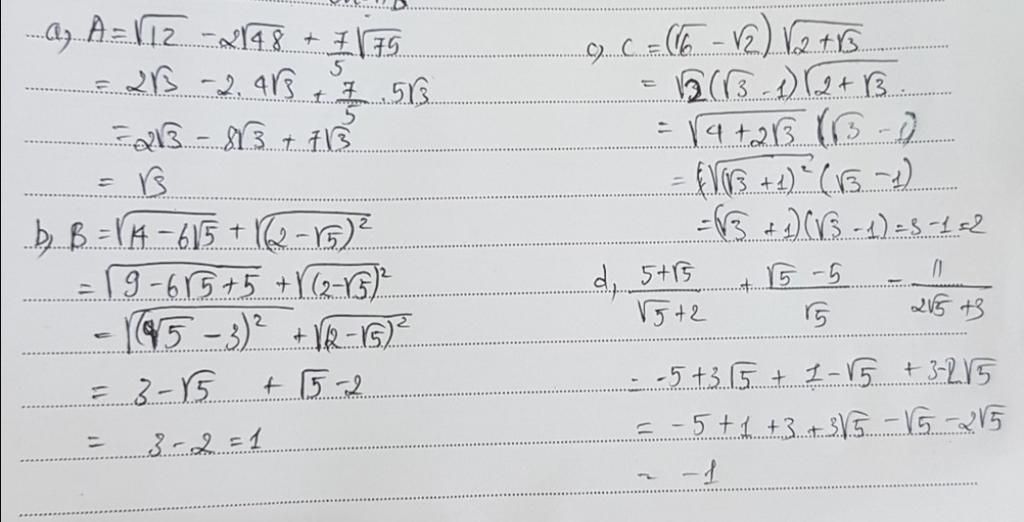 a, A = √12 - 2√48 + 7/5 √75
= 2√3 - 2. 4√3 + 7/5 . 5√3
= 2√3 - 8√3 + 7√3
= √3
b, B = √(14 - 6√5) + √((2 - √5)²)
= √(9 - 6√5 + 5) + √((2-√5)²)
= √((√5 - 3)²) + √((2-√5)²)
= 3 - √5 + √5 - 2
= 3 - 2 = 1
c, C = (√6 - √2) √(2 + √3)
= √2 (√3 - 1) √(2 + √3).
= √(4 + 2√3) (√3 - 1)
= √((√3 + 1)²) (√3 - 1)
= (√3 + 1)(√3 - 1) = 3 - 1 = 2
d, (5+√5)/(√5+2) + (√5 - 5)/√5 - 11/(2√5 + 3)
= -5 + 3√5 + 1 - √5 + 3-2√5
= -5 + 1 + 3 + 3√5 - √5 - 2√5
= -1